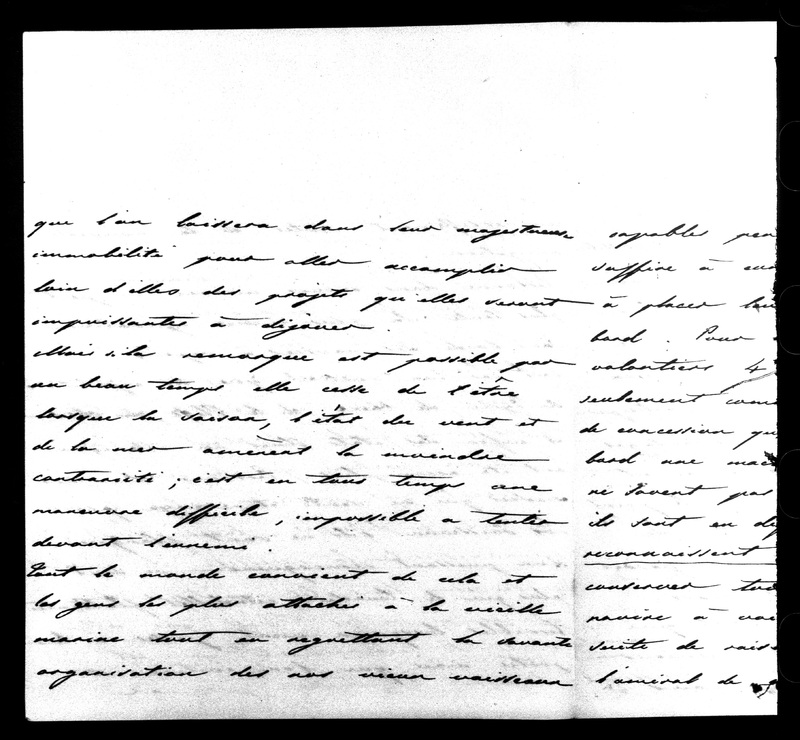 que l'on laissera dans leur majestueuse
immobilité pour aller accomplir
loin d'elles des projets qu'elles seront
impuissantes à déjouer.
Mais si la remorque est possible par
un beau temps elle cesse de l'être
lorsque la saison, l'état du vent et
de la mer amènent la moindre
contrariété ; c'est en tous temps une
manœuvre difficile, impossible a tenter
devant l'ennemi.
Tout le monde convient de cela et
les gens les plus attachés à la vieille
marine tout en regrettant la savante
organisation des nos vieux vaisseaux
capables
suffire à
à placer
bord. Pour
volontiers 4
seulement
de concession
bord une
ne savent pas
ils sont en
reconnaissent
conserver
navire à
suite de
l'amiral de